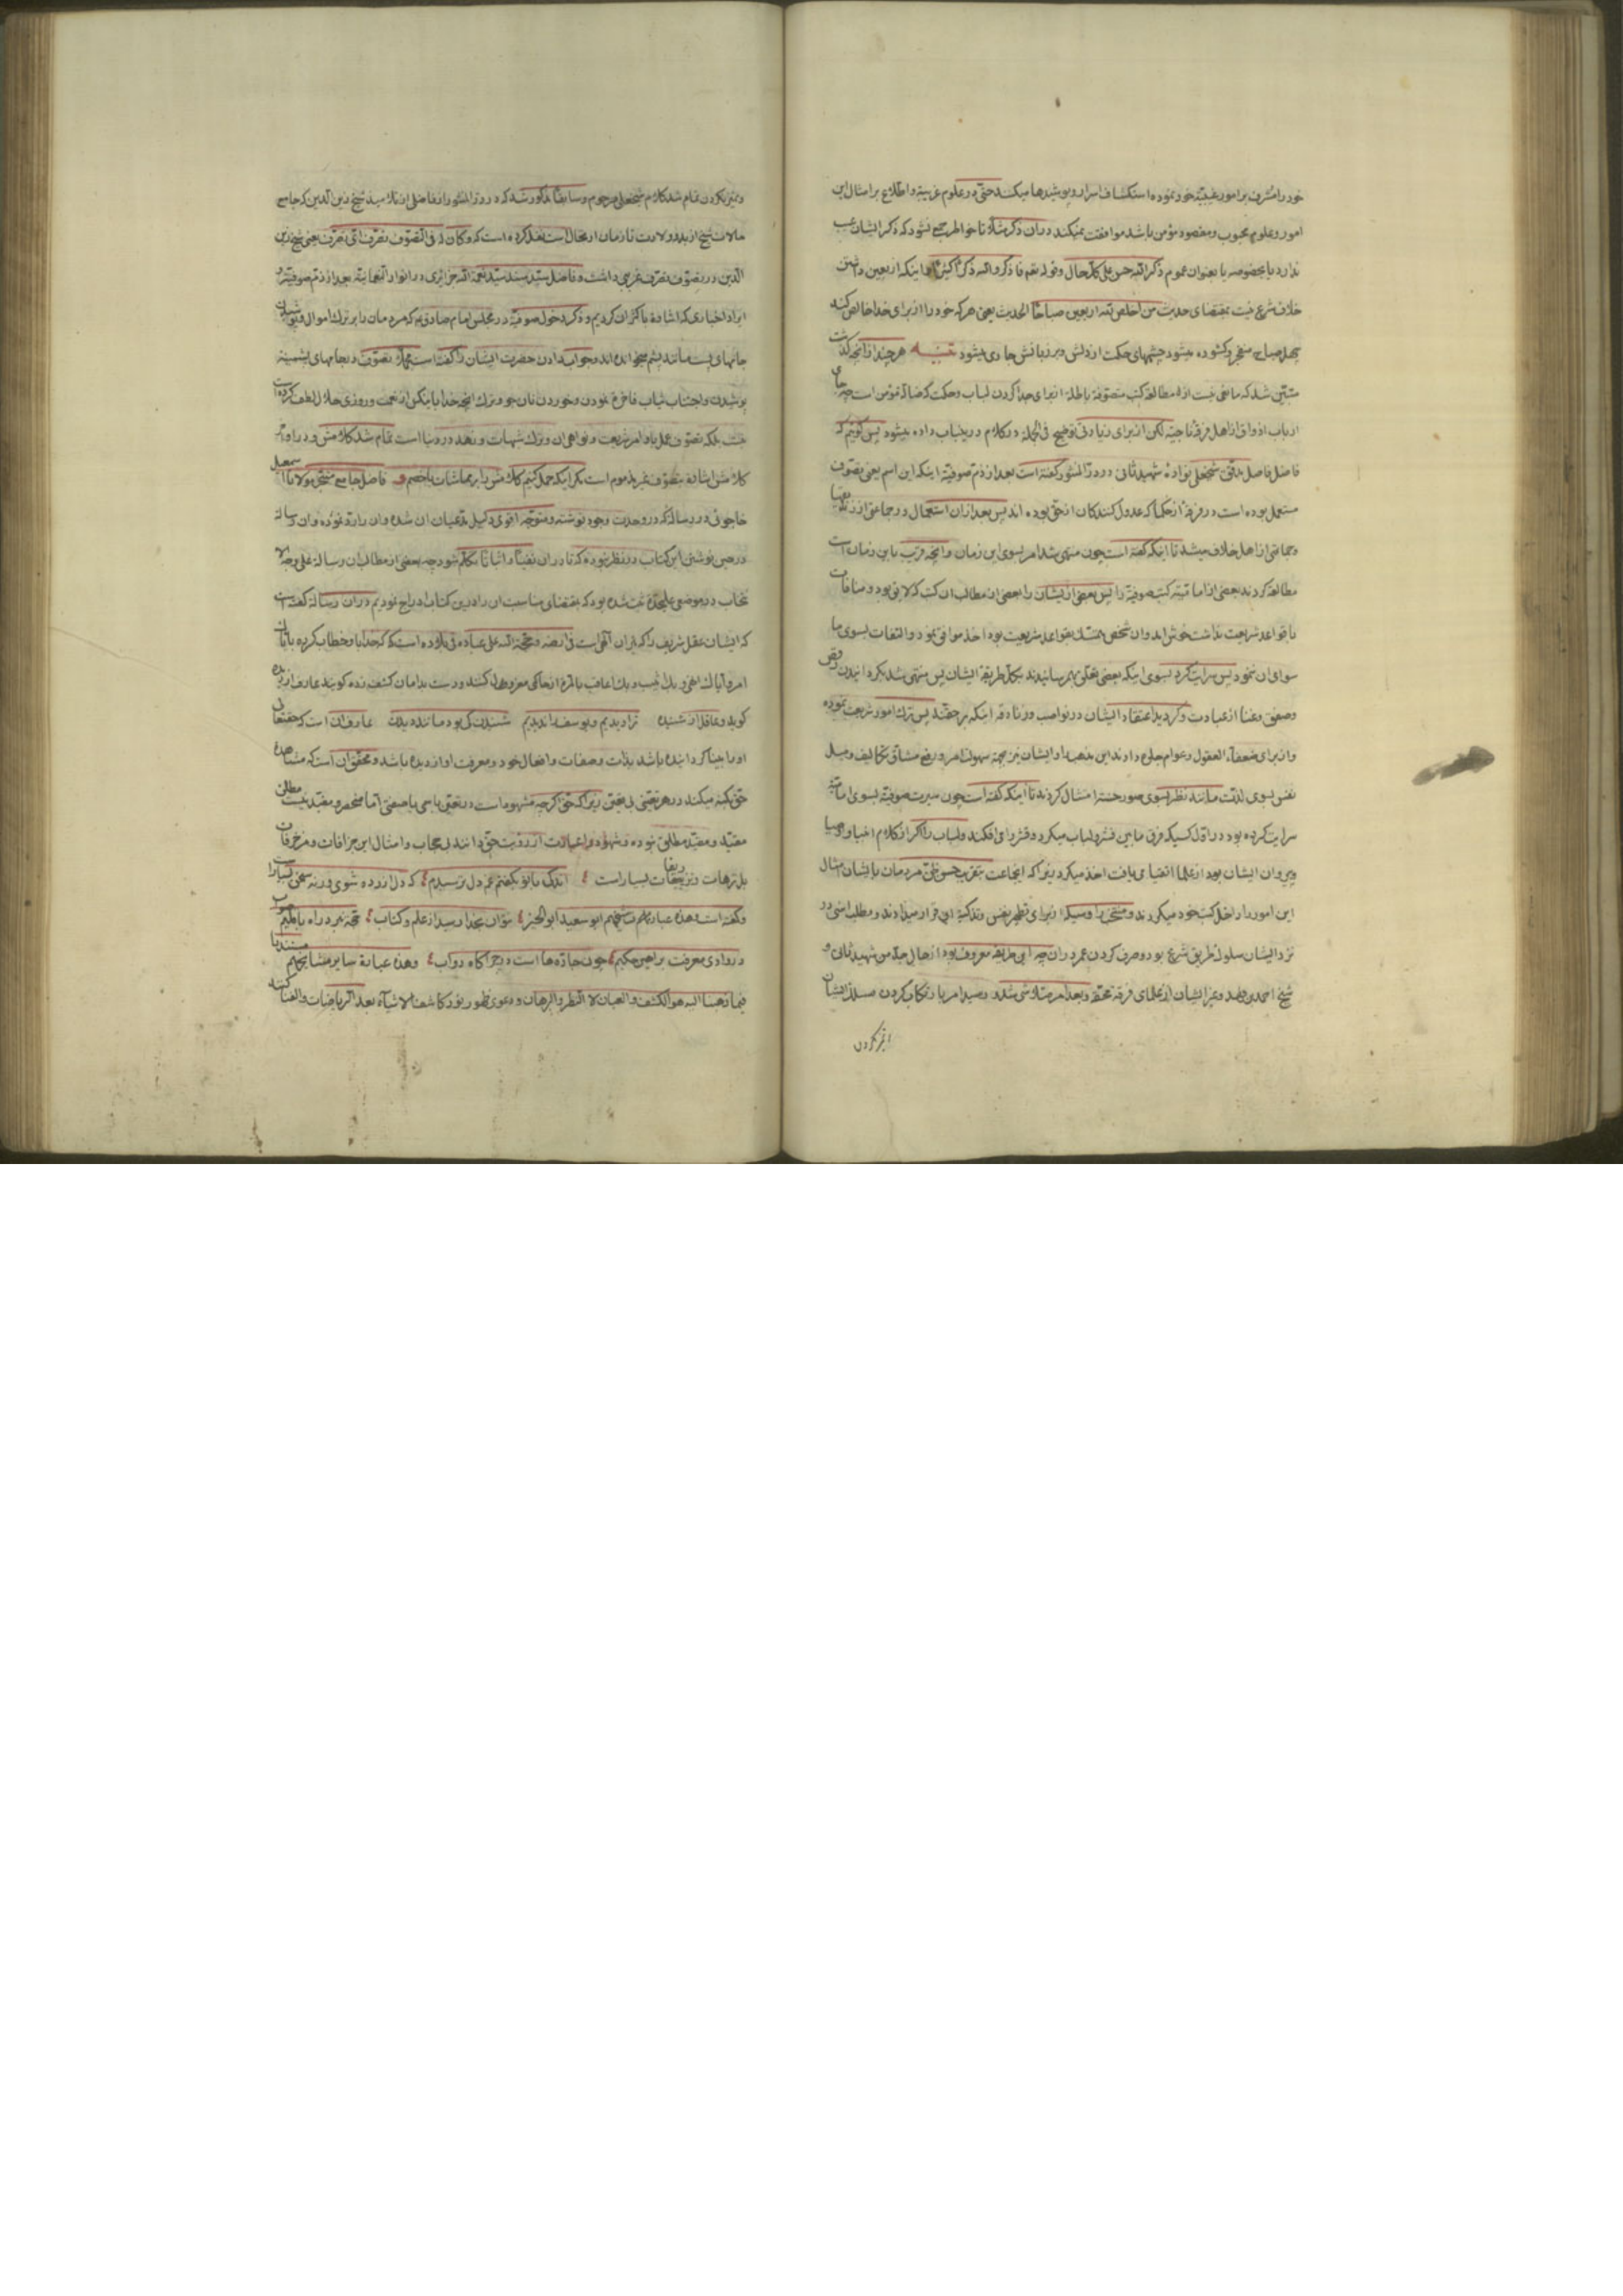 خود را مشرف بر امور غیبیه خود نموده استکشاف اسرار و پوشیدها میکند حتی در علوم غریبه و اطلاع بر امثال این
امور و علوم محبوب و مقصود مؤمن باشد موافقت نمیکند در ان ذکر مثلا تا خواطر جمع نشود که ذکر ایشان عیب
ندارد یا بخصوصه یا بعنوان عموم ذکر الله حسن علی کل حال وقوله نعم فاذکروا الله ذکرا کثیرا اما اینکه اربعین داشتن
خلاف شرع نیست بمقتضای حدیث من اخلص لله اربعین صباحا الحدیث یعنی هر که خود را از برای خدا خالص کند
چهل صباح منفجر و کشوده میشود چشمهای حکمت از دلش و بر زبانش جاری میشود تنبیه هر چند از انچه کذشت
متبین شد که مانعی نیست از مطالعه کتب متصوفه باطله از برای جدا کردن لباب و حکمت که ضاله مؤمن است
ارباب اذواق از اهل فرقه ناجیه لکن از برای زیادتی توضیح فی الجمله در کلام در ینباب داده میشود پس کوئیم که
فاضل فاضل مدقق شیخعلی نواده شهید ثانی در در المنثور کفته است بعد از ذم صوفیه اینکه این اسم یعنی تصوف
مستعمل بوده است در فرقه از حکما که عدول کنندکان از حق بوده اند پس بعد از ان استعمال در جماعتی از زندیقها
و جماعتی از اهل خلاف میشد تا اینکه کفته است چون منتهی شد امر بسوی این زمان و انچه قریب باین زمان است
مطالعه کردند بعضی از امامیه کتب صوفیه را پس بعضی از یشان را بعضی از مطالب ان کتب که لایق بود و منافات
با قواعد شریعت نداشت خوش امد و ان شخص متمسک بقواعد شریعت بود اخذ موافق نمود و التفات بسوی ما
سوای ان ننمود پس سرایت کرد بسوی اینکه بعضی تعلق بهم رسانیدند بکل طریقه ایشان پس منتهی شد بکردانیدن رقص
وصفق و غنا از عبادت و کردید اعتقاد ایشان در نواصب و زنادقه اینکه بر حقند پس ترک امور شریعت نموده
و از برای ضعفاء العقول و عوام جلوه دادند این مذهب را و ایشان نیز بجهة سهولت امر و رفع مشاق تکالیف و میل
نفس بسوی لذت مانند نظر بسوی صور حسنه امتثال کردند تا اینکه کفته است چون سیرت صوفیه بسوی امامیه
سرایت کرده بود در اول کسیکه فرق ما بین قشر و لباب میکرد و قشر را می افکند و لباب را اکر از کلام اخیار و اوصیا
و پیروان ایشان بود از علما اتقیا می یافت اخذ میکرد زیرا که انجماعت بتقریب حسن ظن مردمان بایشان امثال
این امور را داخل کتب خود میکردند و متشخص را وسیله از برای تطهیر نفس و تزکیه ان قرار میدادند و مطلب اسنی در
نزد ایشان سلوک طریق شرع بود و صرف کردن عمر در ان چه این طریقه معروف بود از حال جد من شهید ثانی و
شیخ احمد بن فهد و غیر ایشان از علمای فرقه محقه و بعد امر متلاشی شد و رسید امر بارتکاب کردن مسلک ایشان
و تمیز نکردن تمام شد کلام شیخعلی مرحوم و سابقا مذکور شد که در در المنثور از فاضلی از تلامیذ شیخ زین الدین که جامع
حالات شیخ از بدو ولادت تا زمان ارتحال است نقل کرده است که و کان له فی التصوف تصرفا ای تصرف یعنی شیخ زین
الدین در تصوف تصرف غریبی داشت و فاضل سید سند سید نعمة الله جزائری در انوار النعمانیه بعد از ذم صوفیه و
ایراد اخباری که اشاره باکثر ان کردیم و ذکر دخول صوفیه در مجلس امام صادق ع که مردمان را بر ترک اموال و پوشیدن
جامهای پست مانند پشم میخوانده اند و جواب دادن حضرت ایشان را کفته است مجملا تصوف در جامهای پشمینه
پوشیدن و اجتناب ثیاب فاخره نمودن و خوردن نان جو و ترک انچه خدا یا بنکس از نعمت و روزی حلال لطف کرده است
نیست بلکه تصوف عمل باوامر شریعت و نواهی ان و ترک شبهات و زهد در دنیا است تمام شد کلامش و در اواخر
کلامش اشاره بتصوف غیر مذموم است مکر اینکه حمل کنیم کلامش را بر مماشات با خصم و فاضل جامع متبحر مولانا اسمعیل
خاجوئی در رساله که در وحدت وجود نوشته و متوجه اقوی دلیل مدعیان ان شده و ان را رد نموده و ان رساله
در حین نوشتن این کتاب در نظر نبوده که تا در ان نفیا و اثباتا تکلم شود چه بعضی از مطالب ان رساله علی وجه الا
نتخاب در موضعی علیحده ثبت شده بود که بمقتضای مناسبت ان را در ین کتاب ادراج نمودیم در ان رساله کفته است
که ایشان عقل شریف را که میزان الهی است فی ارضه و حجة الله علی عباده فی بلاده است که خدا با و خطاب کرده بایاک
امر و ایاک انهی و بک اثیب و بک اعاقب بالمره از حاکمی معزول کنند و دست بدامان کشف زده کویند عارف از دیده
کوید و عاقل از شنیده ترا دیدیم و یوسف را ندیدیم شنیدن کی بود مانند دیدن عارف ان است که حقتعالی
او را بینا کردانیده باشد بذات و صفات و افعال خود و معرفت او از دیده باشد و محقق ان است که مشاهده
حق کند میکند در هر تعینی بی تعین زیرا که حق اکر چه مشهود است در تعین باسمی یا صفتی اما منحصر و مقید نیست مطلق
مقید و مقید مطلق بوده و شهود و اعیانات از رویت حق دانند بی حجاب و امثال این جزافات و مزخرفات
بل ترهات و تزریقات بسیار است اندکی با تو بکفتم غم دل ترسیدم که دل ازرده شوی ورنه سخن بسیار است
و کفته است و هذه عبارتهم شیخهم ابو سعید ابو الخیر نتوان بخدا رسید از علم و کتاب حجت نبرد راه باقلیم صواب
در وادی معرفت براهین حکیم چون جاده ها است در چراکاه دواب و هذه عبارة سایر مشایخهم مستندنا
فیما ذهبنا الیه هو الکشف و العیان لا النظر و البرهان و دعوی ظهور نور کاشف الاشیاء بعد اکر ریاضیات